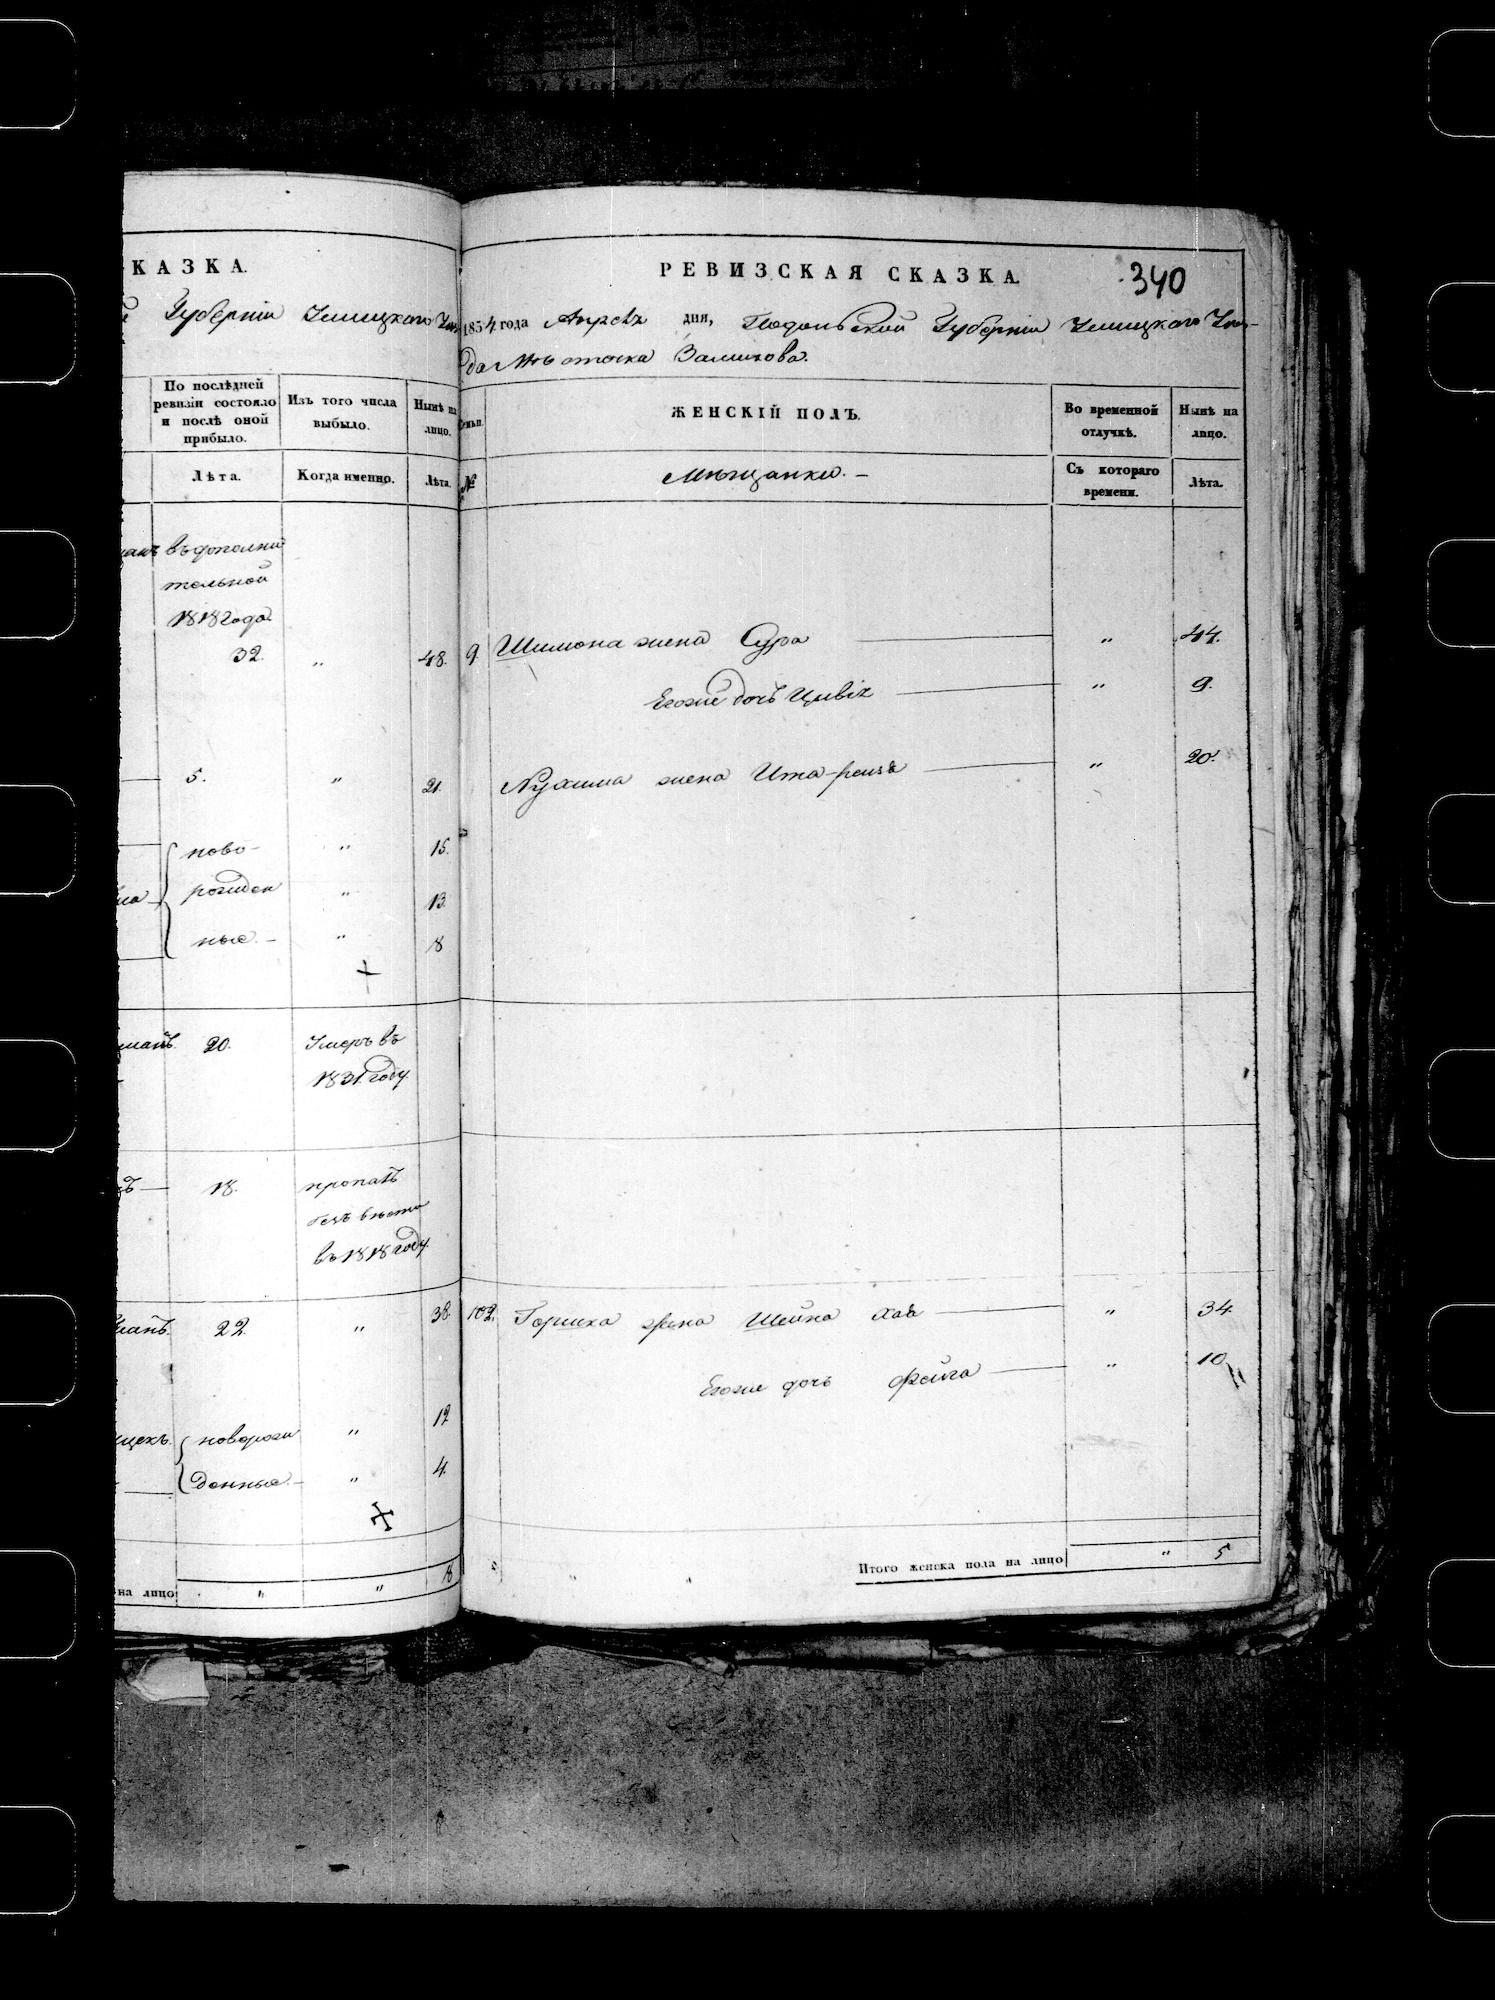 КАЗКА.
Губерніи Ушицкаго
По послѣдней
ревизіи состояло
и послѣ оной
прибыло.
Изъ того числа
выбыло.
Нынѣ на
лицо.
Лѣта.
Когда именно.
Лѣта.
въ дополни
тельной
1818 года
32. „ 48.
5. „ 21.
ново- „ 15.
рожден „ 13.
ные. „ 8
20. Умеръ въ
1831 году.
18. пропалъ
безъ вѣсти
въ 1818 году.
22. „ 38.
новорож „ 12
денные. „ 4.
на лицо „ „ 8
РЕВИЗСКАЯ СКАЗКА.
340
1854 года Апрѣля дня, Подольской Губерніи Ушицкаго Уѣз-
да Мѣстечка Замихова.
Семьи.
ЖЕНСКІЙ ПОЛЪ.
Во временной
отлучкѣ.
Нынѣ на
лицо.
№
Мѣщанки.
Съ котораго
времени.
Лѣта.
9. Шимона жена Сура „ 44.
Егоже дочь Цивія „ 9.
Нухима жена Ита-рейзя „ 20.
102. Гершка жена Шейна Хая „ 34.
Егоже дочь Фейга „ 10
Итого женска пола на лицо „ 5